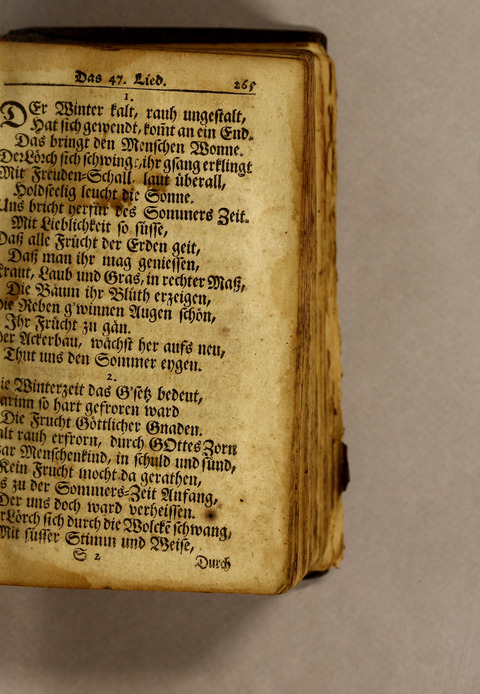 Das 47. Lied. 265
1.
DEr Winter kalt, rauh ungestalt,
Hat sich gewendt, kom̃t an ein End.
Das bringt den Menschen Wonne.
Der Lörch sich schwing: ihr gsang erklingt
Mit Freuden-Schall, laut überall,
Holdseelig leucht die Sonne.
Uns bricht herfür des Sommers Zeit.
Mit Lieblichkeit so süsse,
Daß alle Frücht der Erden geit,
Daß man ihr mag geniessen,
Kraut, Laub und Gras, in rechter Maß,
Die Bäum ihr Blüth erzeigen,
Die Reben g'winnen Augen schön,
Ihr Frücht zu gän.
Der Ackerbau, wächst her aufs neu,
Thut uns den Sommer eygen.
2.
Winterzeit das G'setz bedeut,
so hart gefroren ward
Die Frucht Göttlicher Gnaden.
rauh erfrorn, durch GOttes Zorn
Menschenkind, in schuld und sünd,
Kein Frucht mocht da gerathen,
zu der Sommers-Zeit Anfang,
Der uns doch ward verheissen.
Lörch sich durch die Wolckẽ schwang,
Mit süsser Stimm und Weise,
S 2 Durch